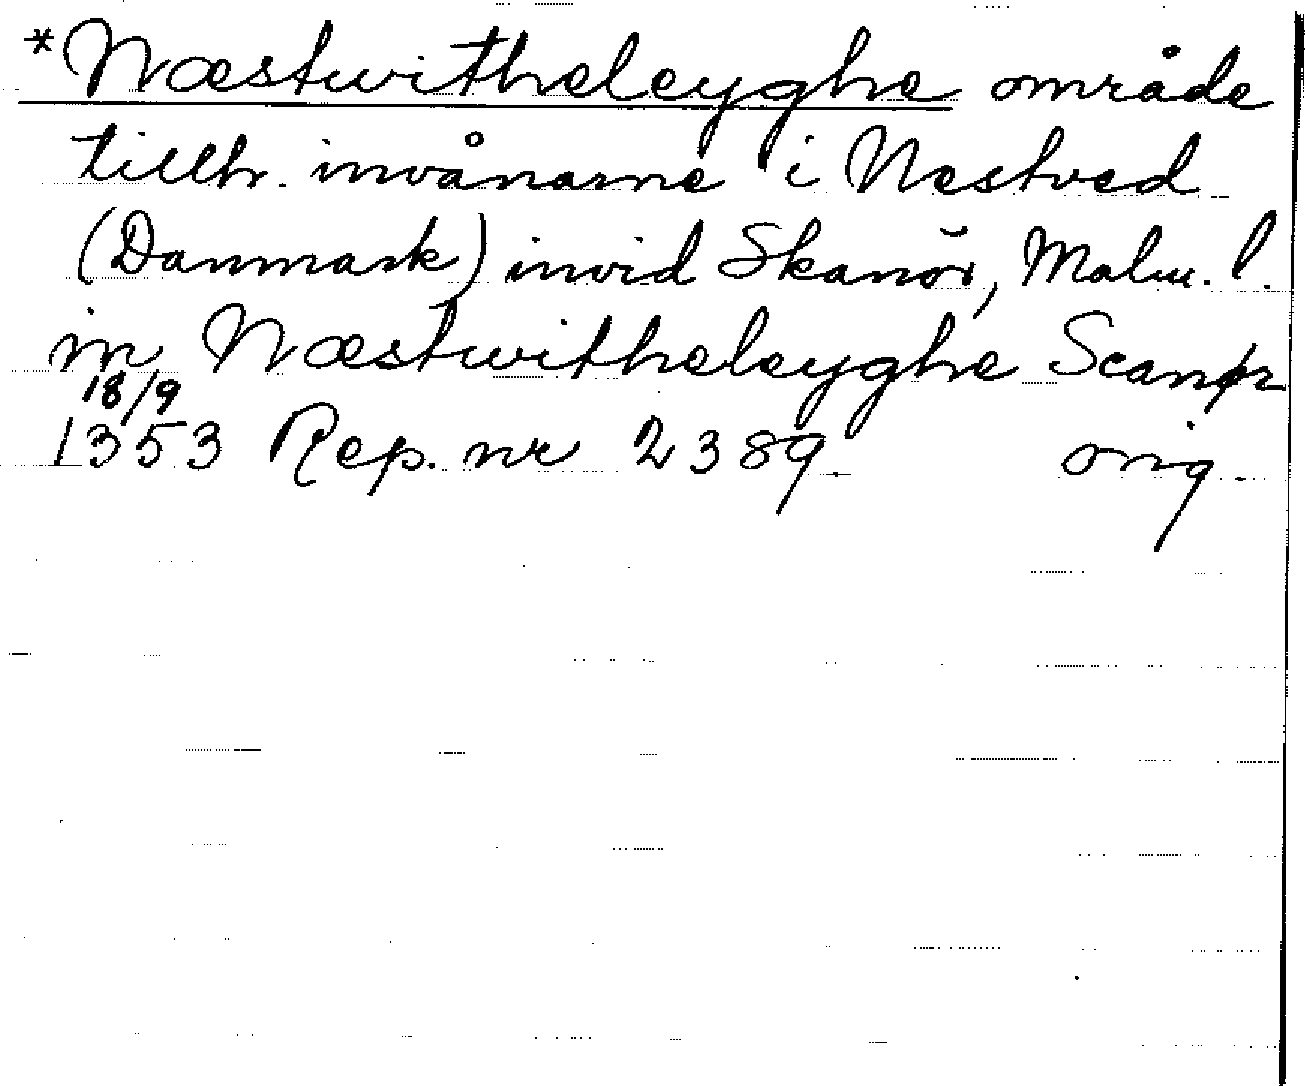 *Næstwitheleyghe område
tillhr. invånarne i Nestved
(Danmark) invid Skanör, Malm. l.
in Næstwitheleyghe Scanør
18/9
1353 Rep. nr 2389 orig.